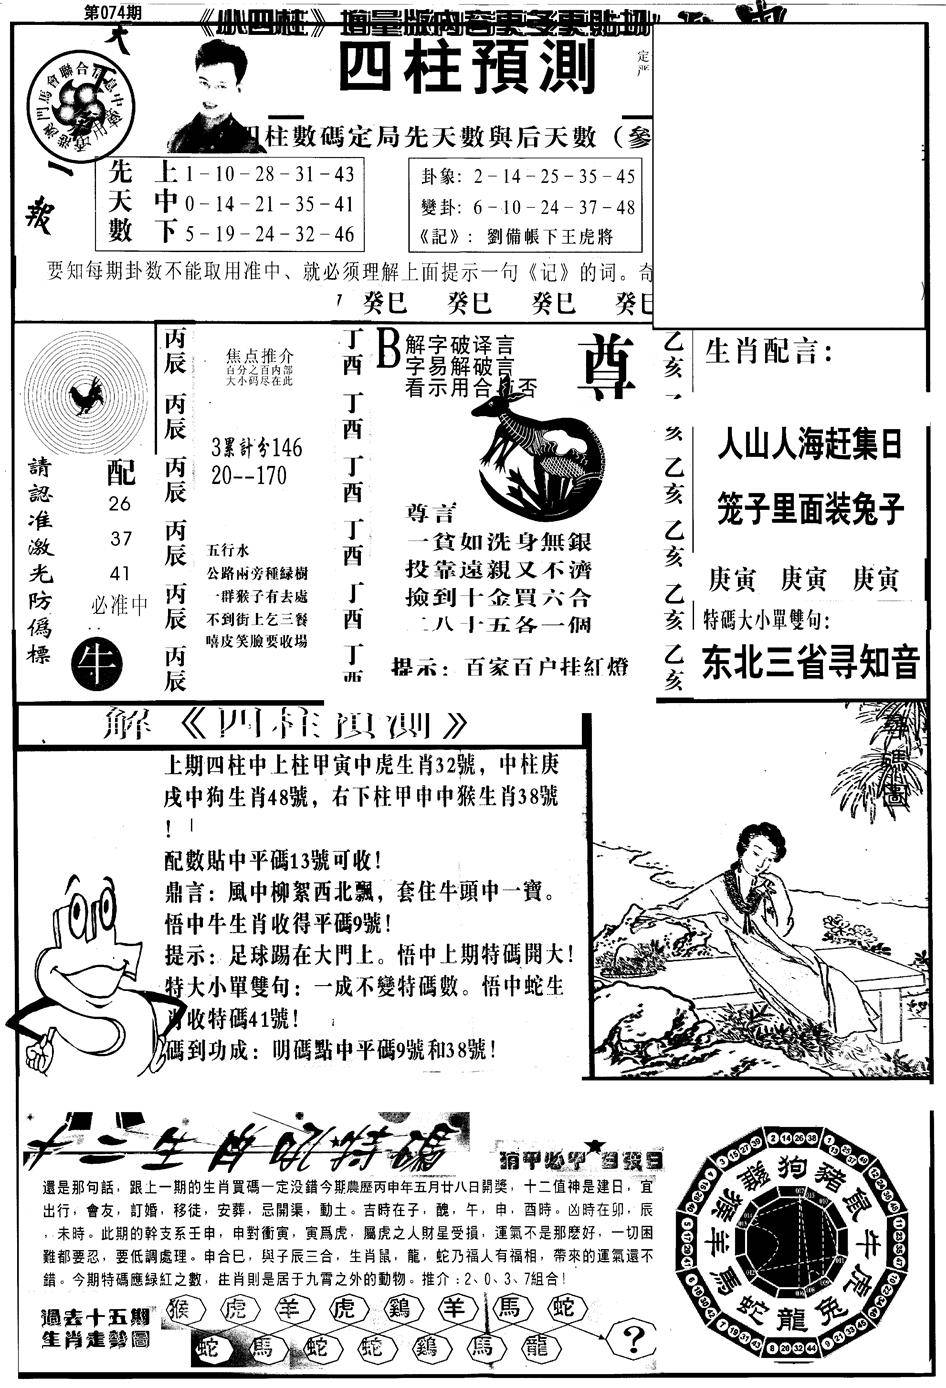 第074期
《小四柱》增量版內容更多更貼切
天
下
一
報
港澳門馬會聯合信息中心
四柱預測
定
严
四柱數碼定局先天數與后天數（參
先 上 1－10－28－31－43
天 中 0－14－21－35－41
數 下 5－19－24－32－46
卦象: 2－14－25－35－45
變卦: 6－10－24－37－48
《記》: 劉備帳下王虎將
要知每期卦数不能取用准中、就必须理解上面提示一句《记》的词。奇
癸巳 癸巳 癸巳 癸巳
請認准激光防僞標
配
26
37
41
必准中
牛
丙辰 丙辰 丙辰 丙辰 丙辰 丙辰
焦点推介
百分之百内部
大小码尽在此
3累計分146
20--170
五行水
公路兩旁種緑樹
一群猴子有去處
不到街上乞三餐
嘻皮笑臉要收場
丁酉 丁酉 丁酉 丁酉 丁酉 丁酉
B 解字破译言
字易解破言
看示用合 否
尊
尊言
一貧如洗身無銀
投靠遠親又不濟
撿到十金買六合
二八十五各一個
提示: 百家百户挂紅燈
乙亥 亥 乙亥 乙亥 乙亥 乙亥
生肖配言:
人山人海赶集日
笼子里面装兔子
庚寅 庚寅 庚寅
特碼大小單雙句:
东北三省寻知音
解《四柱預測》
上期四柱中上柱甲寅中虎生肖32號，中柱庚
戌中狗生肖48號，右下柱甲申中猴生肖38號
！
配數貼中平碼13號可收！
鼎言: 風中柳絮西北飄，套住牛頭中一寶。
悟中牛生肖收得平碼9號！
提示: 足球踢在大門上。悟中上期特碼開大！
特大小單雙句: 一成不變特碼數。悟中蛇生
肖收特碼41號！
碼到功成: 明碼點中平碼9號和38號！
尋碼圖
十二生肖配特碼
猜中必中 日發日
還是那句話，跟上一期的生肖買碼一定没錯今期農歷丙申年五月廿八日開獎，十二值神是建日，宜
出行，會友，訂婚，移徒，安葬，忌開渠，動土。吉時在子，醜，午，申，酉時。凶時在卯，辰
，未時。此期的幹支系壬申，申對衝寅，寅爲虎，屬虎之人財星受損，運氣不是那麽好，一切困
難都要忍，要低調處理。申合巳，與子辰三合，生肖鼠，龍，蛇乃福人有福相，帶來的運氣還不
錯。今期特碼應緑紅之數，生肖則是居于九霄之外的動物。推介:2、0、3、7組合！
過去十五期
生肖走勢圖
猴 虎 羊 虎 鷄 羊 馬 蛇
蛇 馬 蛇 蛇 鷄 馬 龍 ？
狗 豬 鼠 牛 虎 兔 龍 蛇 馬 羊 猴 雞